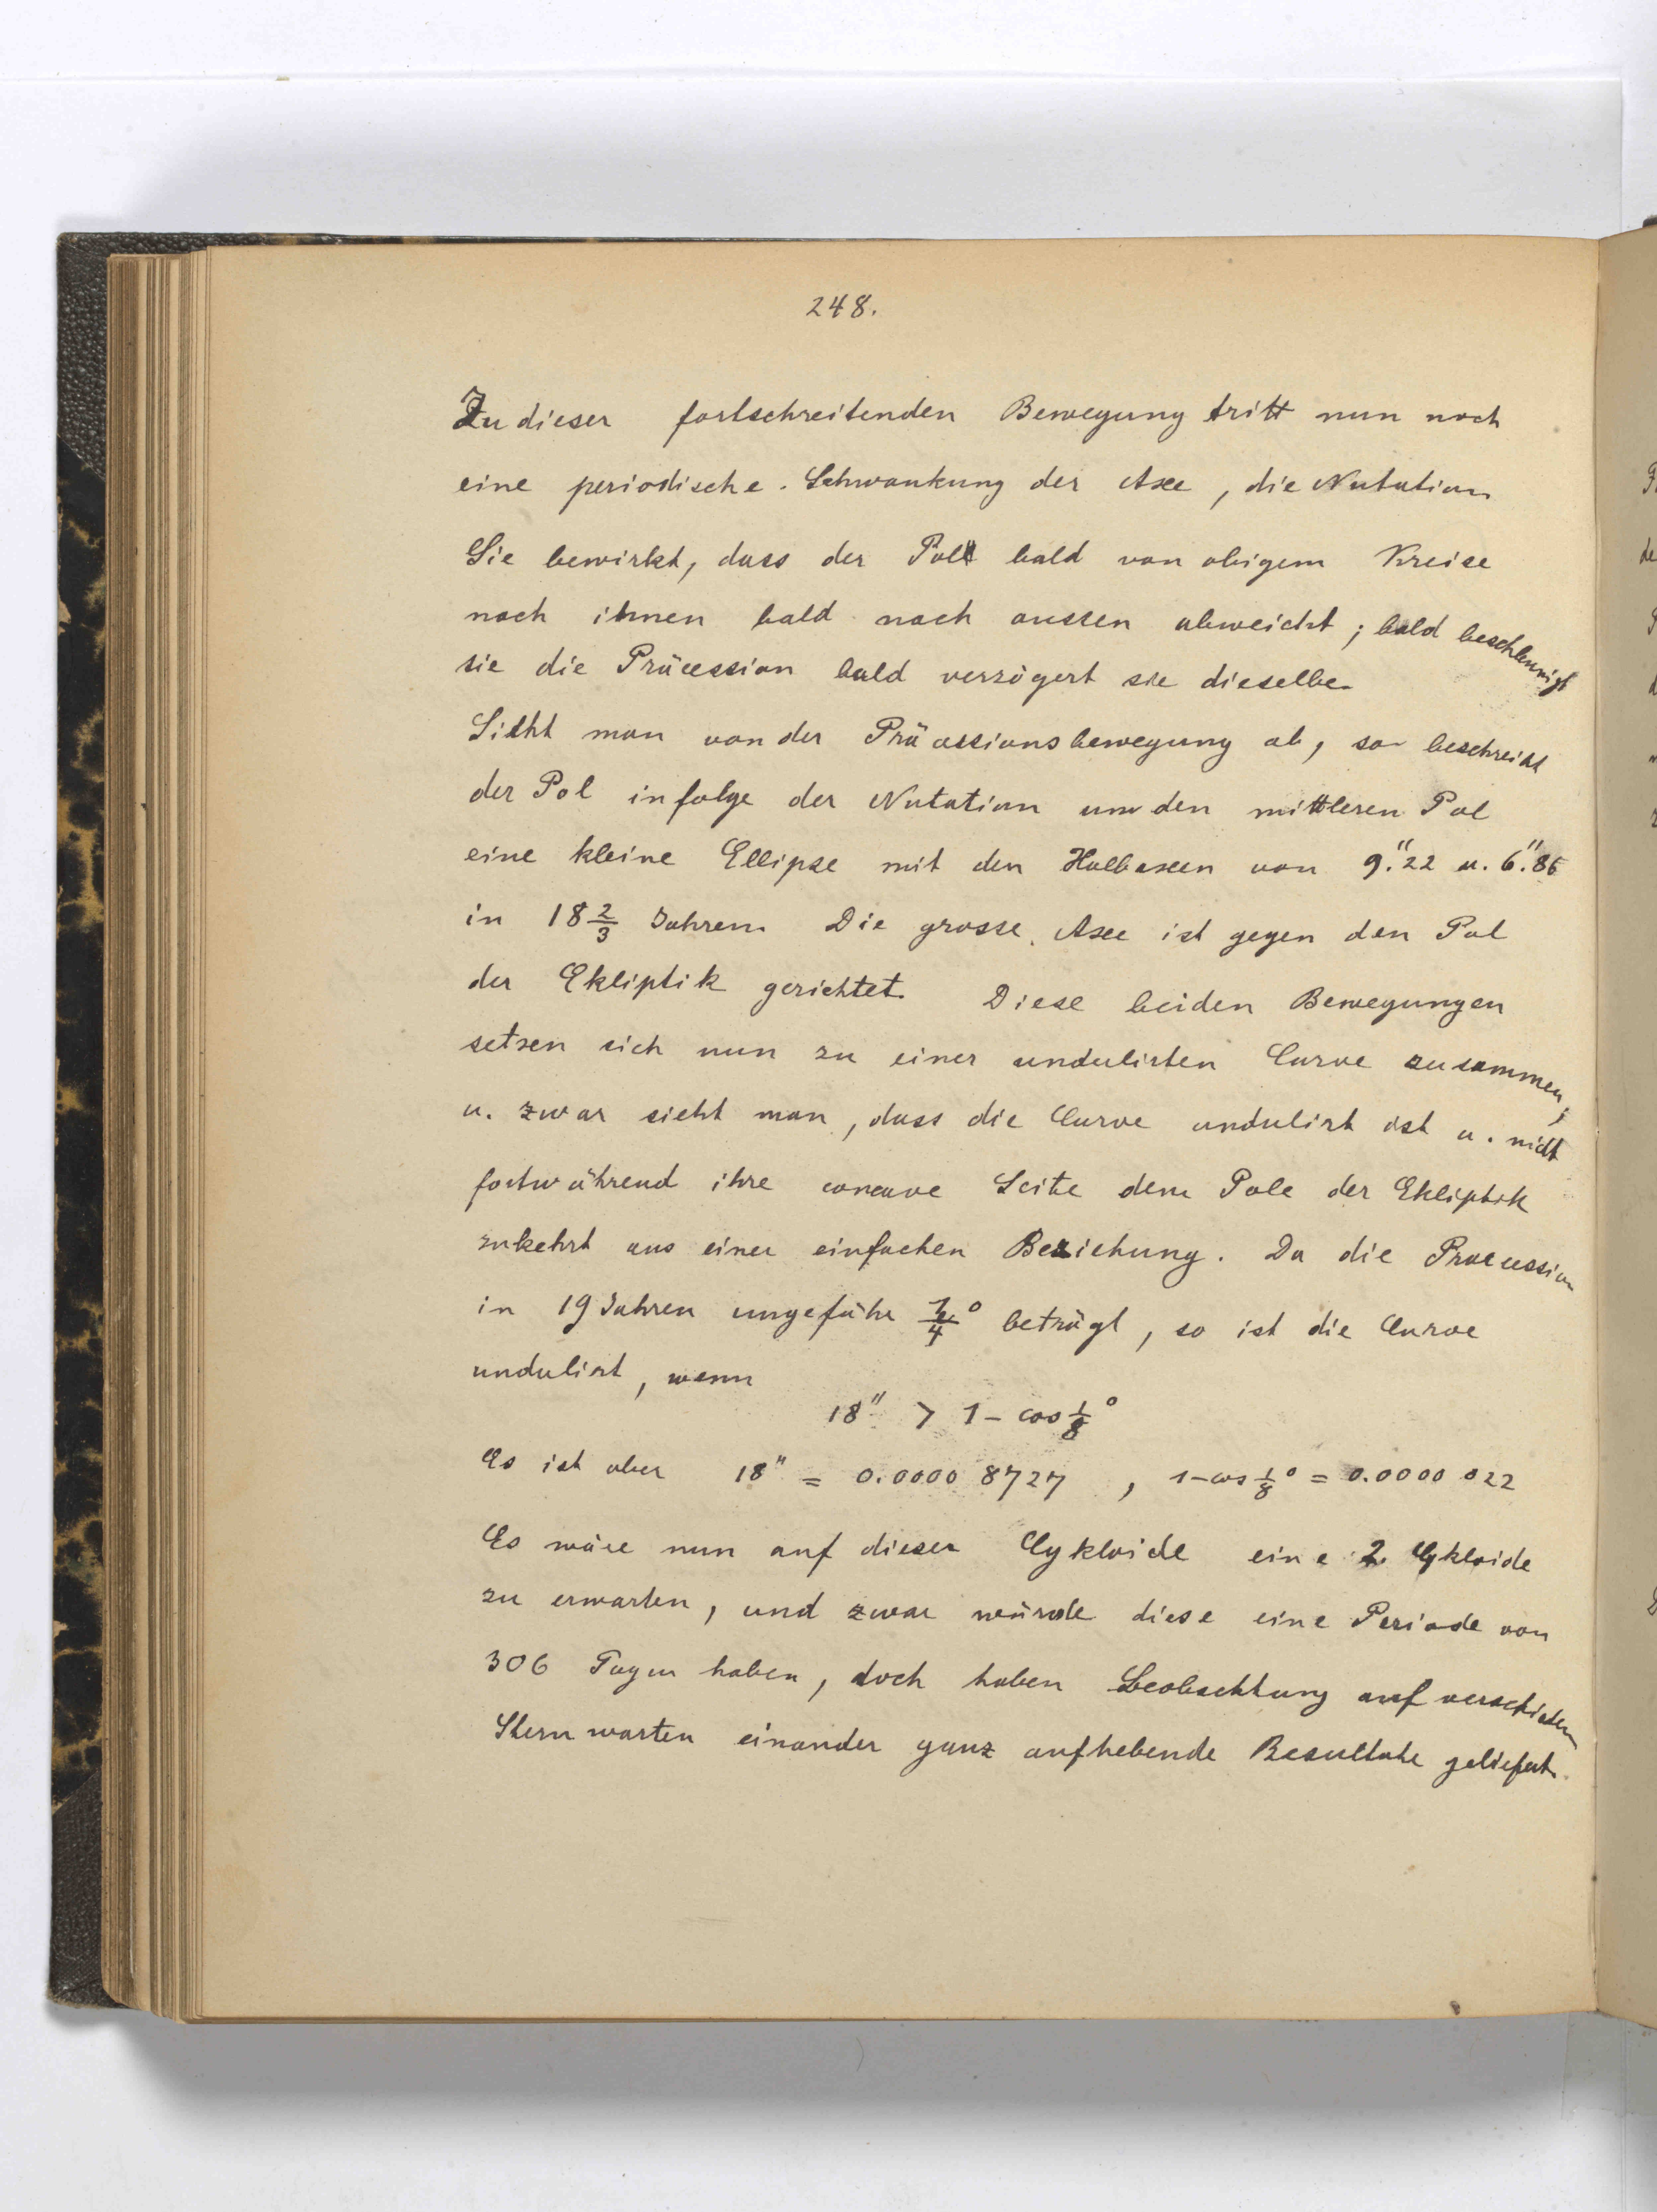 248.
Zu dieser fortschreitenden Bewegung tritt nun noch
eine periodische Schwankung der Axe, die Nutation
Sie bewirkt, dass der Pol bald von obigem Kreise
nach innen bald nach aussen abweicht; bald beschleunigt
sie die Präcession bald verzögert sie dieselbe.
Sieht man von der Präcessionsbewegung ab, so beschreibt
der Pol infolge der Nutation um den mittleren Pol
eine kleine Ellipse mit den Halbaxen von 9."22 u. 6."86
in 18 2/3 Jahren. Die grosse Axe ist gegen den Pol
der Ekliptik gerichtet. Diese beiden Bewegungen
setzen sich nun zu einer undulirten Curve zusammen,
u. zwar sieht man, dass die Curve undulirt ist u. nicht
fortwährend ihre concave Seite dem Pole der Ekliptik
zukehrt aus einer einfachen Beziehung. Da die Precession
in 19 Jahren ungefähr 1/4° beträgt, so ist die Curve
undulirt, wenn
18" > 1 - cos 1/8°
Es ist aber 18" = 0.0000 8727, 1-cos 1/8° = 0.0000 022
Es wäre nun auf dieser Cykloide eine 2. Cykloide
zu erwarten, und zwar würde diese eine Periode von
306 Tagen haben, doch haben Beobachtung auf verschieden
Sternwarten einander ganz aufhebende Resultate geliefert.